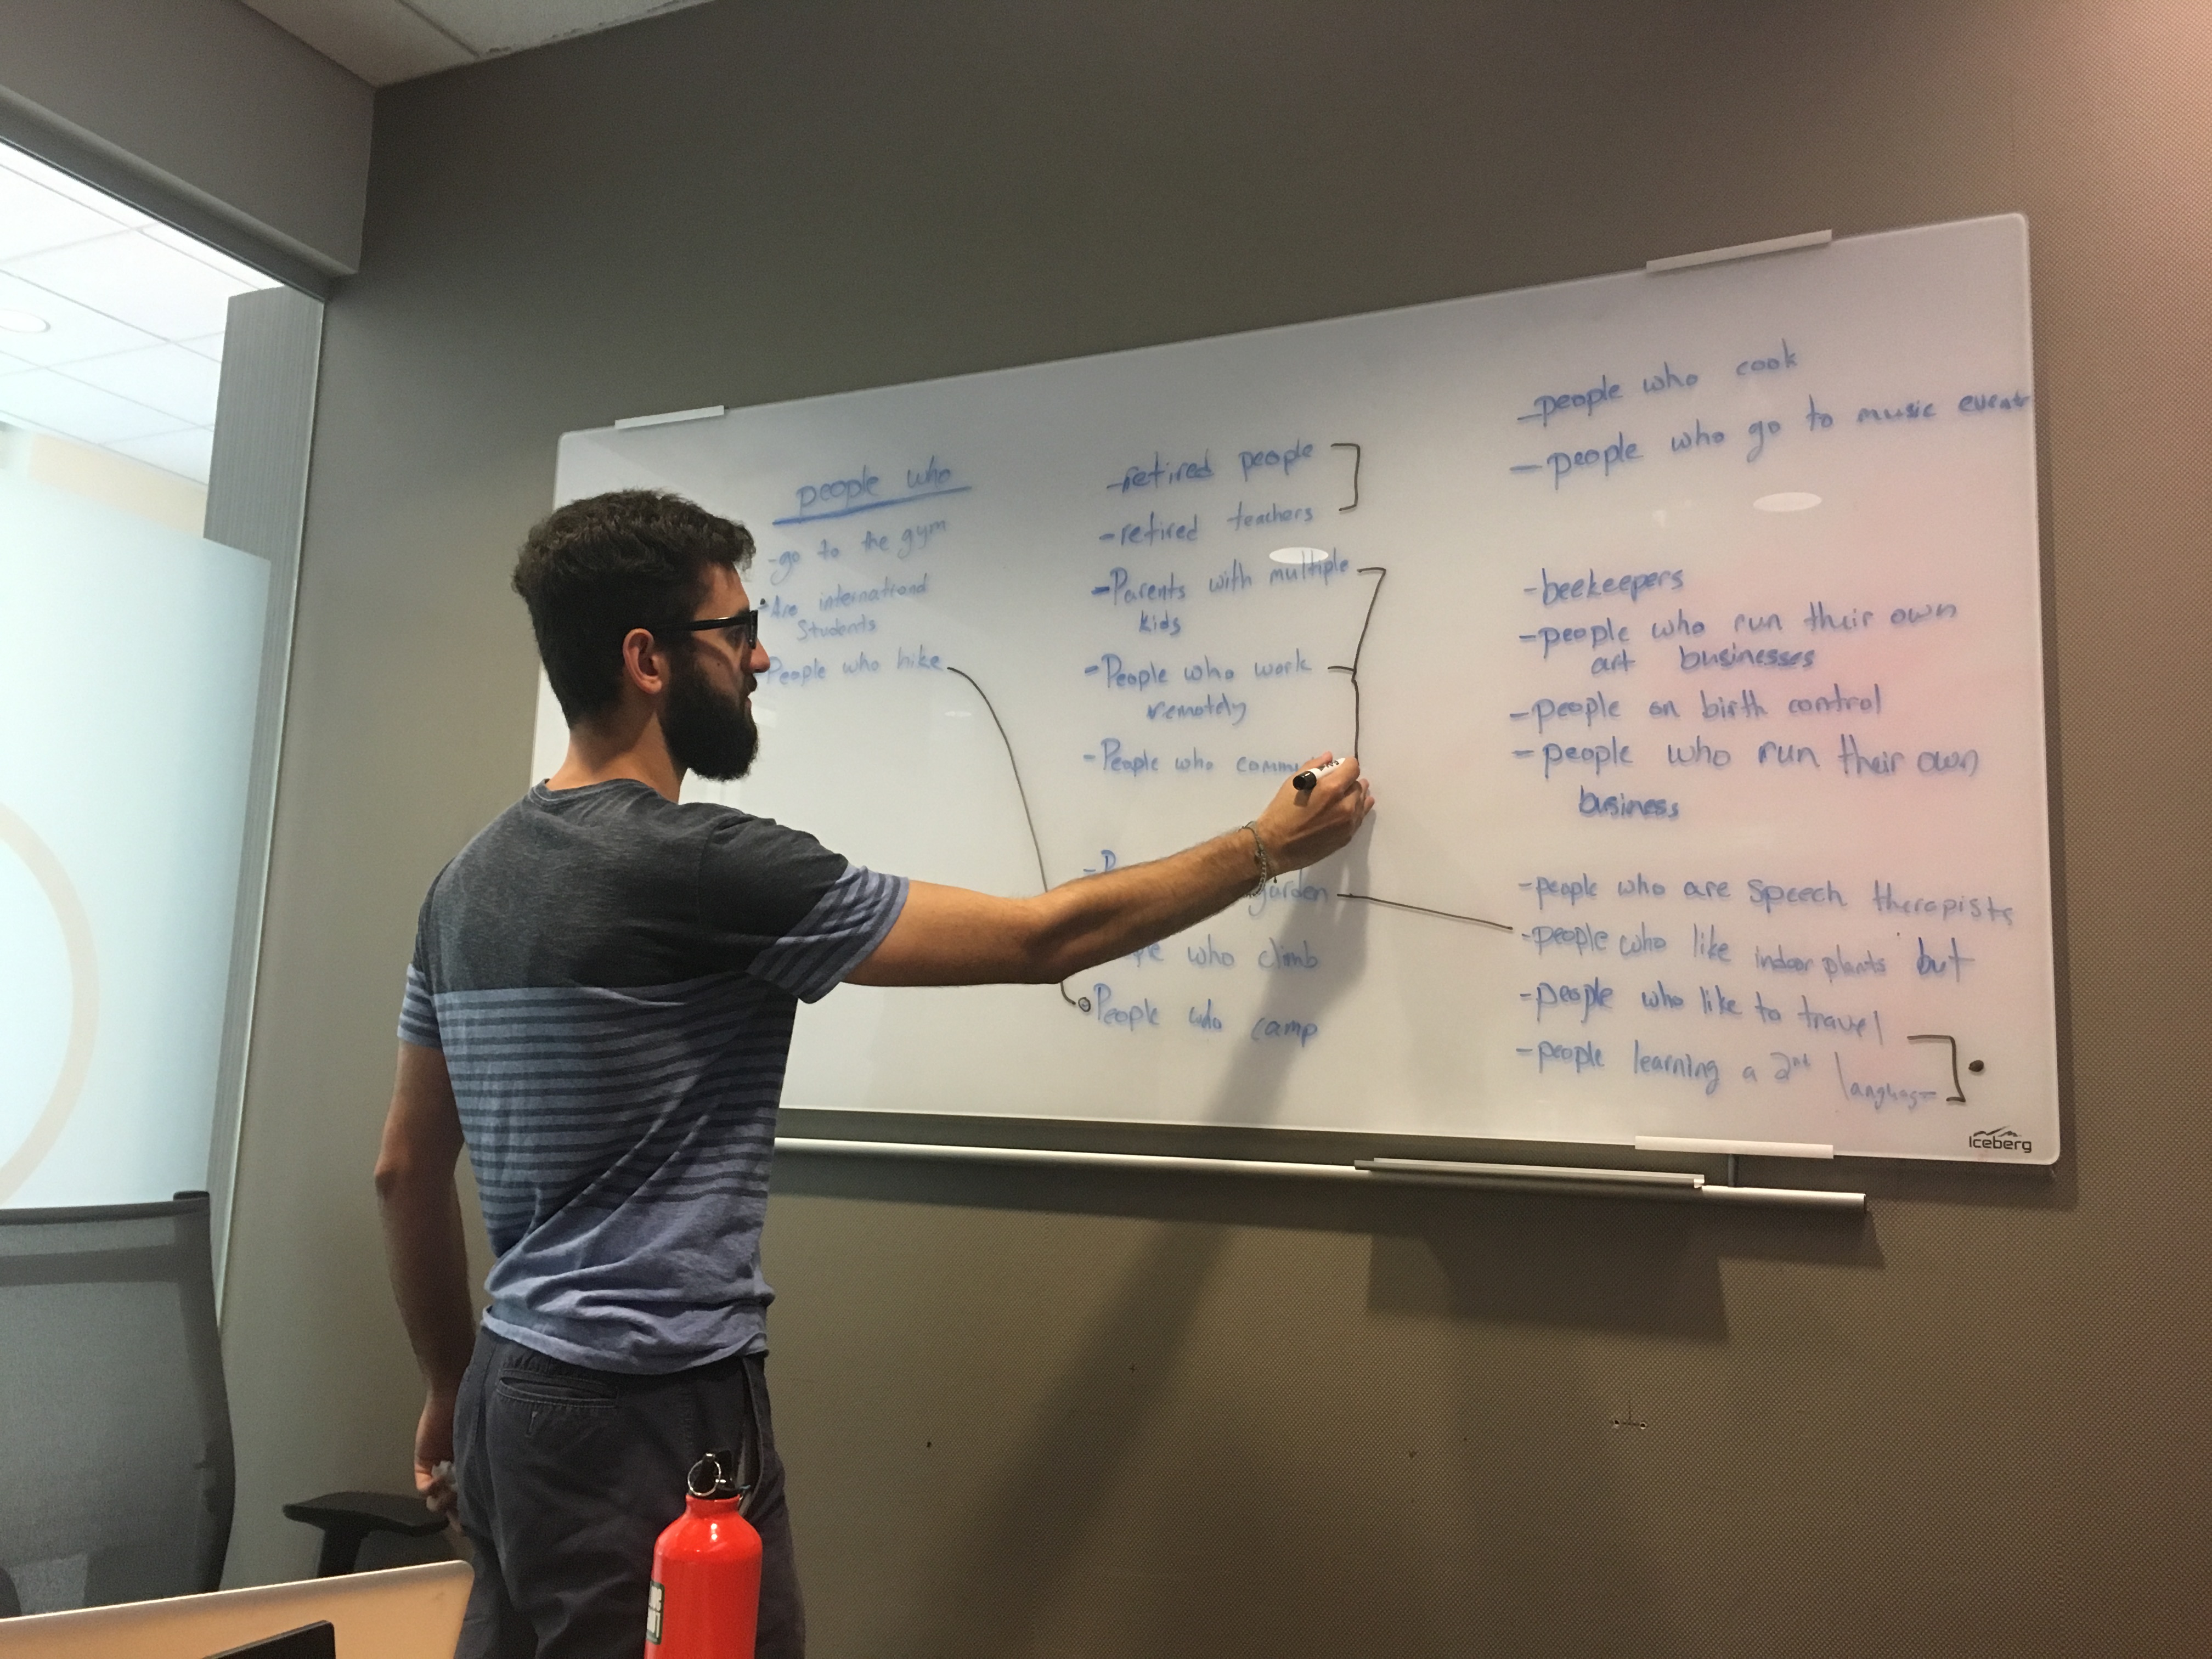 people who
-go to the gym
-Are international
Students
People who hike
-retired people
-retired teachers
-Parents with multiple
kids
-People who work
remotely
-People who
garden
who climb
People who camp
-people who cook
-people who go to music events
-beekeepers
-people who run their own
art businesses
-people on birth control
-people who run their own
business
-people who are speech therapists
-people who like indoor plants but
-people who like to travel
-people learning a 2nd language
Iceberg